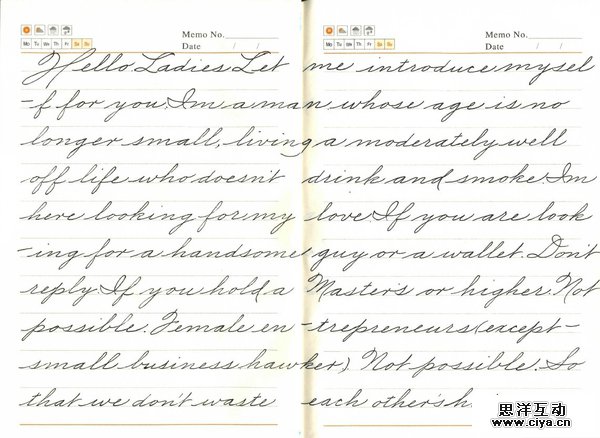 Memo No.
Date / /
Mo Tu We Th Fr Sa Su
Memo No.
Date / /
Mo Tu We Th Fr Sa Su
Hello Ladies Let me introduce mysel
-f for you. Im a man whose age is no
longer small, living a moderately well
off life who doesn't drink and smoke. Im
here looking for my love. If you are look
-ing for a handsome guy or a wallet. Don't
reply. If you hold a Master's or higher. Not
possible. Female en -trepreneurs (except -
small business hawker) Not possible. So
that we don't waste each other's h
思洋互动
www.ciya.cn